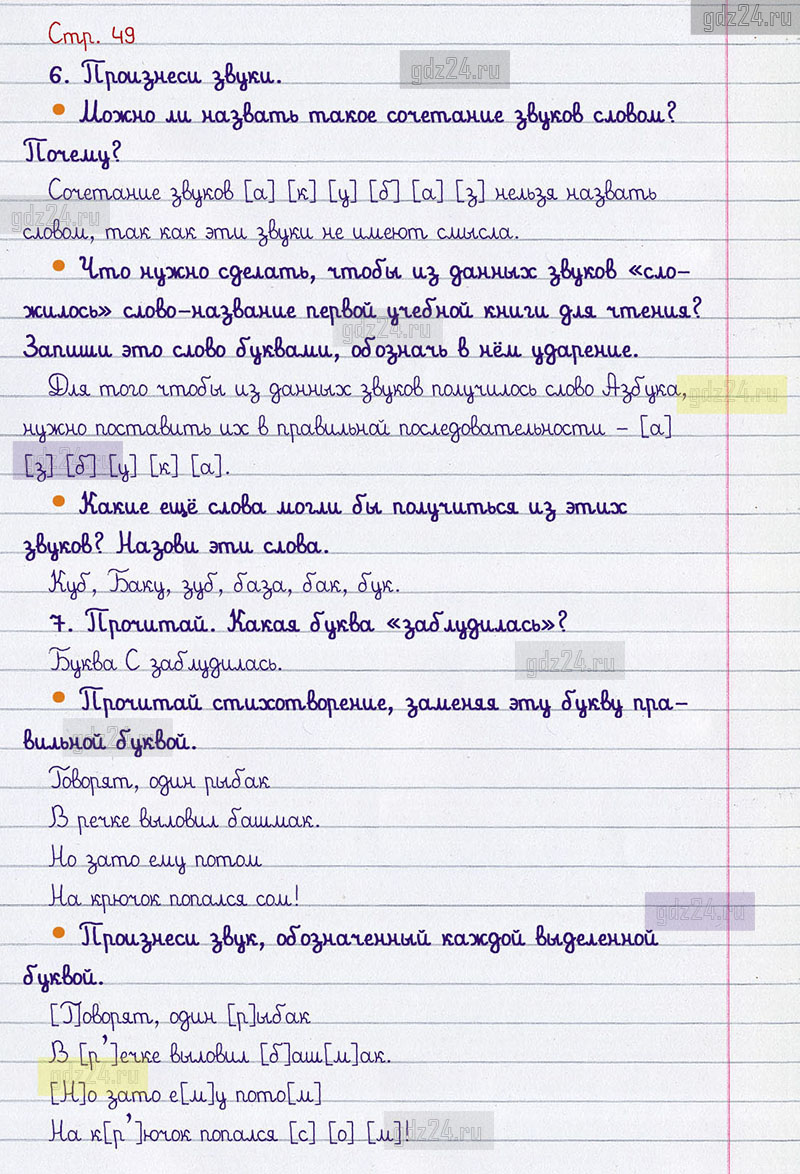 gdz24.ru
Стр. 49
6. Произнеси звуки.
gdz24.ru
• Можно ли назвать такое сочетание звуков словом?
Почему?
Сочетание звуков [а] [к] [у] [б] [а] [з] нельзя назвать
gdz24.ru
словом, так как эти звуки не имеют смысла.
• Что нужно сделать, чтобы из данных звуков «сло-
жилось» слово-название первой учебной книги для чтения?
gdz24.ru
Запиши это слово буквами, обозначь в нём ударение.
Для того чтобы из данных звуков получилось слово Азбука,
gdz24.ru
нужно поставить их в правильной последовательности – [а]
[з] [б] [у] [к] [а].
• Какие ещё слова могли бы получиться из этих
звуков? Назови эти слова.
Куб, Баку, зуб, база, бак, бук.
7. Прочитай. Какая буква «заблудилась»?
Буква С заблудилась.
gdz24.ru
• Прочитай стихотворение, заменяя эту букву пра-
вильной буквой.
gdz24.ru
Говорят, один рыбак
В речке выловил башмак.
Но зато ему потом
На крючок попался сом!
gdz24.ru
• Произнеси звук, обозначенный каждой выделенной
буквой.
[Г]оворят, один [р]ыбак
В [р']ечке выловил [б]аш[м]ак.
gdz24.ru
[Н]о зато е[м]у пото[м]
На к[р']ючок попался [с] [о] [м]!
gdz24.ru